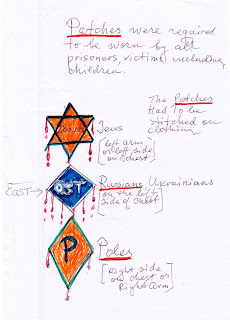 Patches were required
to be worn by all
prisoners, victims including
children.
The Patches
had to be
stitched on
clothing
Jews
[left arm
or left side
on chest]
EAST →
OST
Russians Ukrainians
on the left
side of chest
P
Poles
[Right side
on chest or
Right arm]